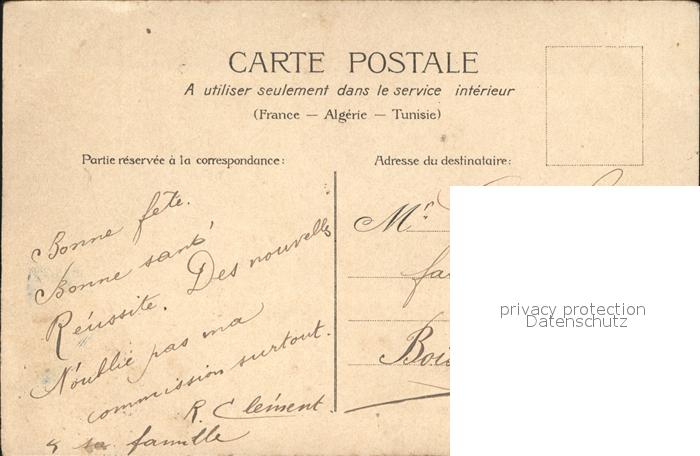 CARTE POSTALE
A utiliser seulement dans le service intérieur
(France — Algérie — Tunisie)
Partie réservée à la correspondance:
Adresse du destinataire:
Bonne fête.
Bonne santé
Réussite. Des nouvelles
N'oublie pas ma
commission surtout.
R. Clément.
& sa famille
Mr
fa
Boi
privacy protection
Datenschutz